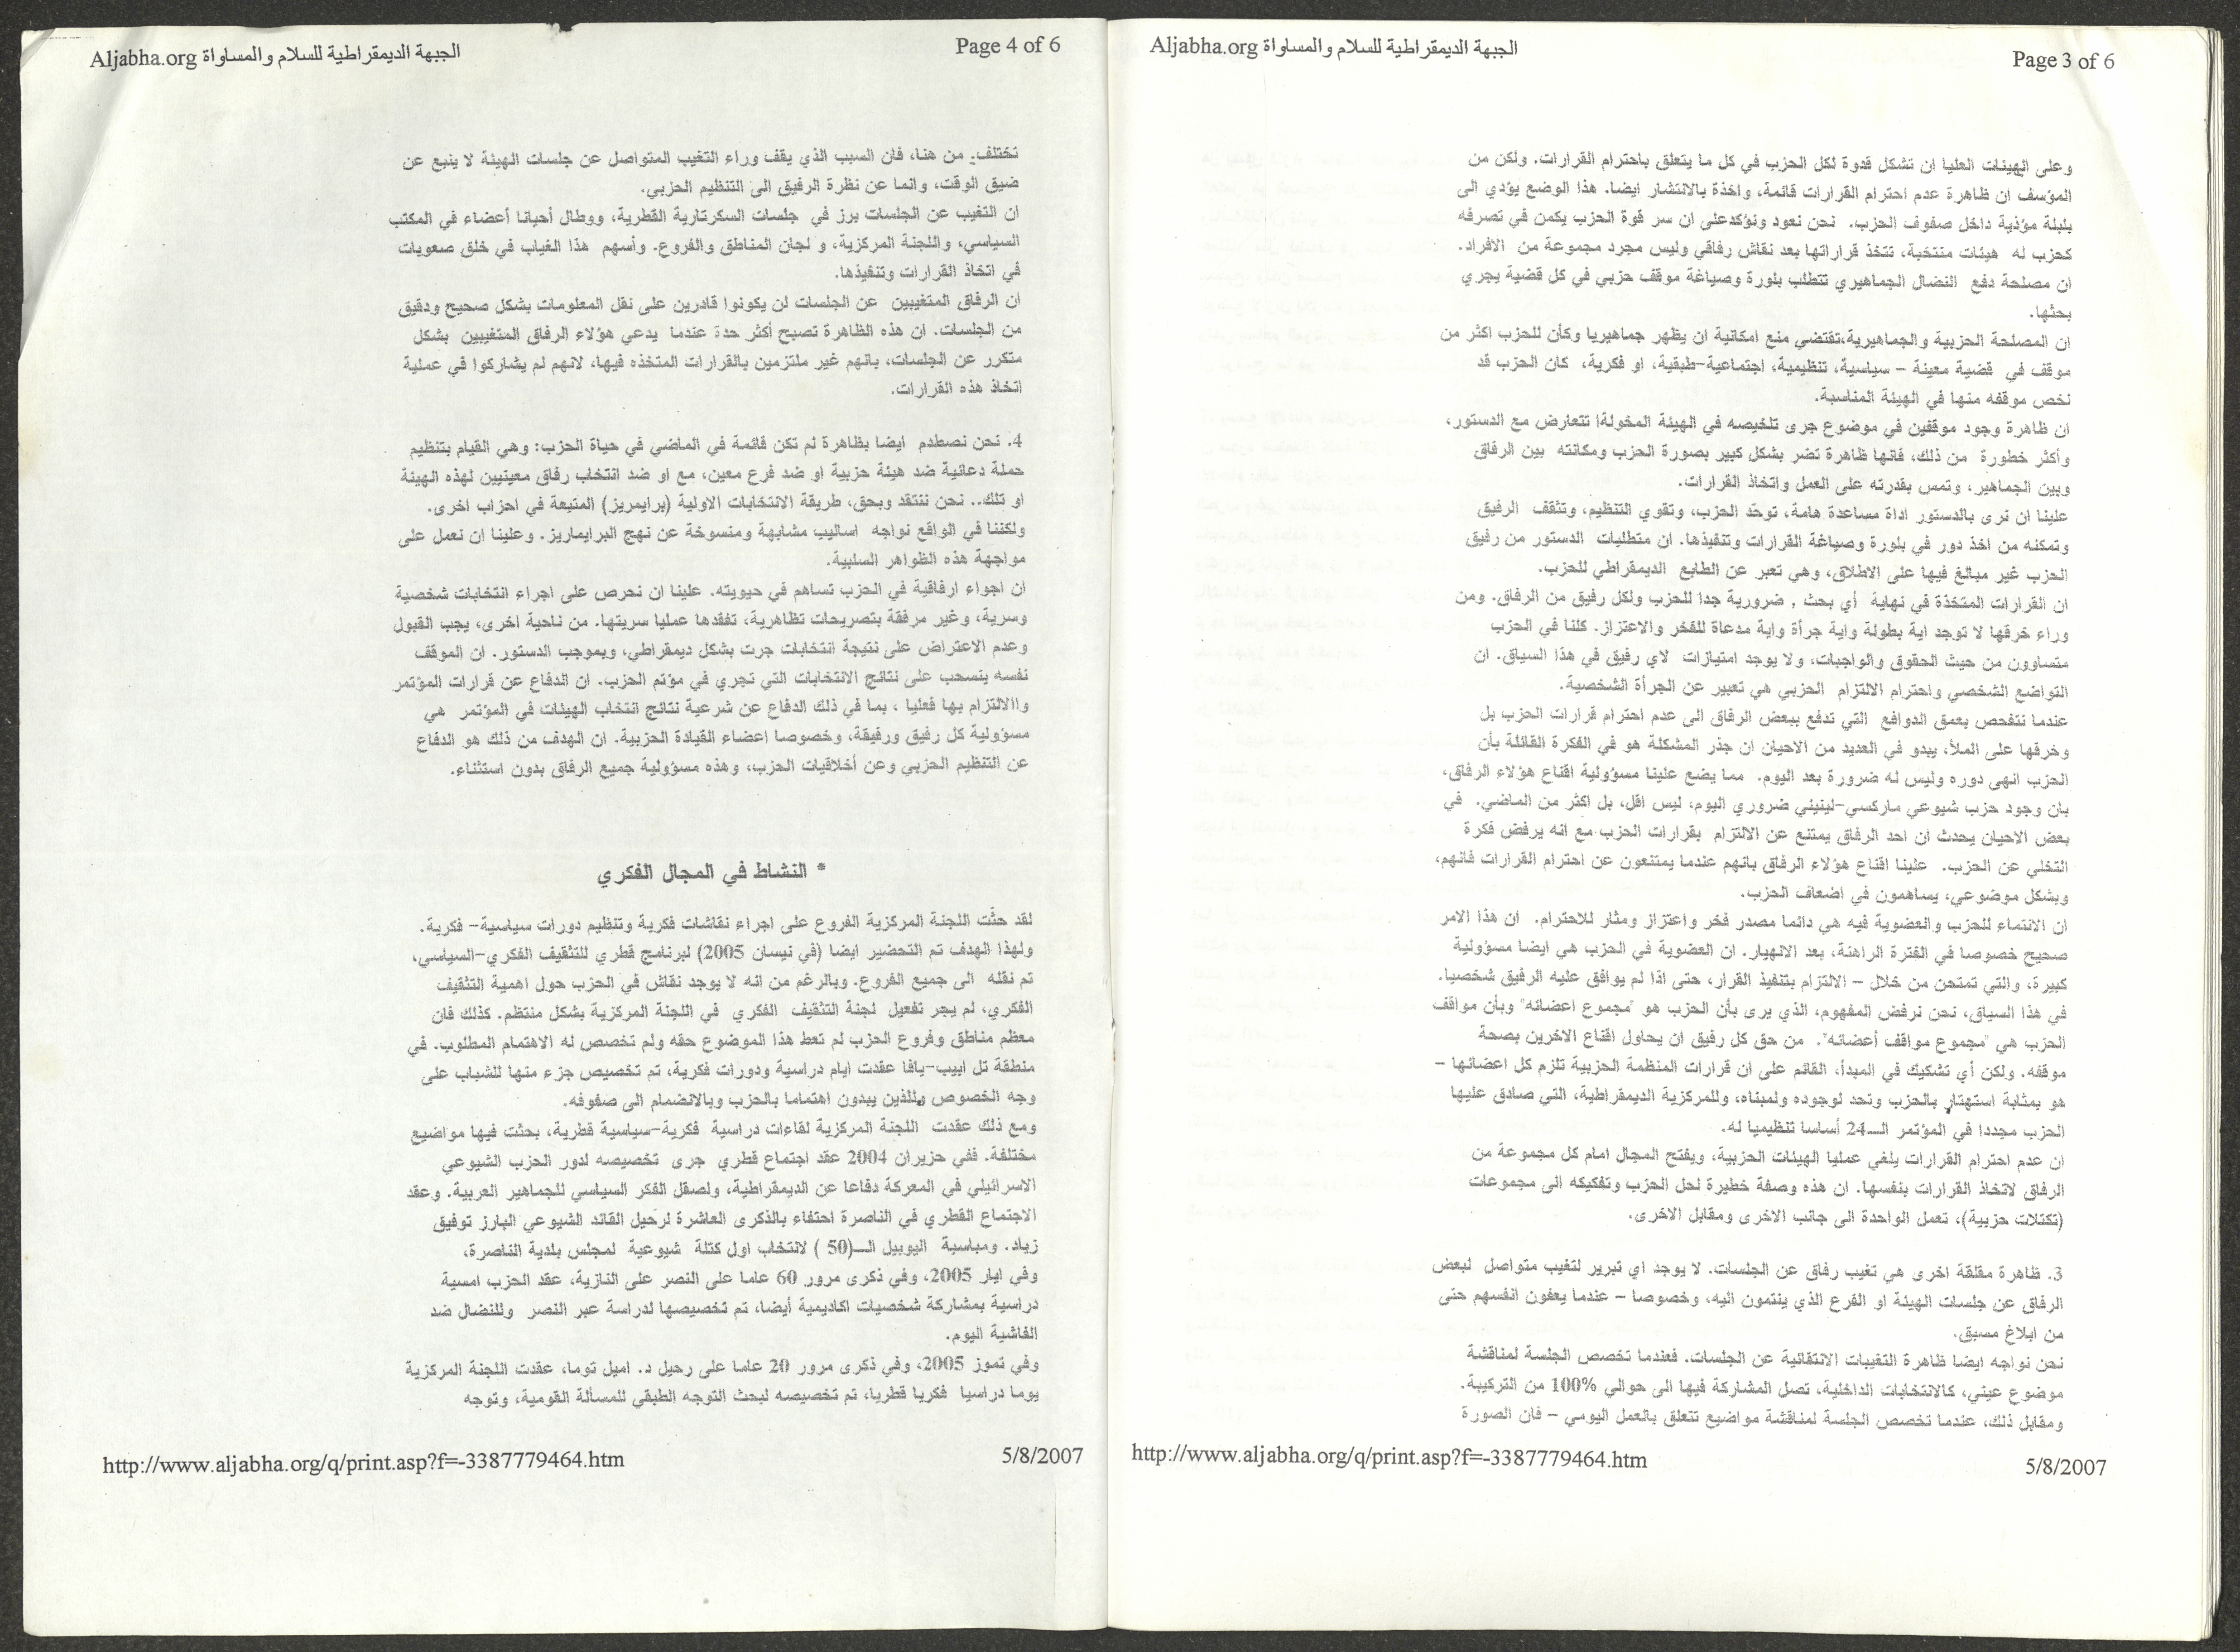 الجبهة الديمقراطية للسلام والمساواة Aljabha.org
Page 3 of 6
وعلى الهيئات العليا ان تشكل قدوة لكل الحزب في كل ما يتعلق باحترام القرارات. ولكن من
المؤسف ان ظاهرة عدم احترام القرارات قائمة، واخذة بالانتشار ايضا. هذا الوضع يؤدي الى
بلبلة مؤذية داخل صفوف الحزب. نحن نعود ونؤكدعلى ان سر قوة الحزب يكمن في تصرفه
كحزب له هيئات منتخبة، تتخذ قراراتها بعد نقاش رفاقي وليس مجرد مجموعة من الافراد.
ان مصلحة دفع النضال الجماهيري تتطلب بلورة وصياغة موقف حزبي في كل قضية يجري
بحثها.
ان المصلحة الحزبية والجماهيرية،تقتضي منع امكانية ان يظهر جماهيريا وكأن للحزب اكثر من
موقف في قضية معينة – سياسية، تنظيمية، اجتماعية-طبقية، او فكرية، كان الحزب قد
لخص موقفه منها في الهيئة المناسبة.
ان ظاهرة وجود موقفين في موضوع جرى تلخيصه في الهيئة المخولة! تتعارض مع الدستور،
وأكثر خطورة من ذلك، فانها ظاهرة تضر بشكل كبير بصورة الحزب ومكانته بين الرفاق
وبين الجماهير، وتمس بقدرته على العمل واتخاذ القرارات.
علينا ان نرى بالدستور اداة مساعدة هامة، توحّد الحزب، وتقوي التنظيم، وتثقف الرفيق
وتمكنه من اخذ دور في بلورة وصياغة القرارات وتنفيذها. ان متطلبات الدستور من رفيق
الحزب غير مبالغ فيها على الاطلاق، وهي تعبر عن الطابع الديمقراطي للحزب.
ان القرارات المتخذة في نهاية أي بحث , ضرورية جدا للحزب ولكل رفيق من الرفاق. ومن
وراء خرقها لا توجد اية بطولة واية جرأة واية مدعاة للفخر والاعتزاز. كلنا في الحزب
متساوون من حيث الحقوق والواجبات، ولا يوجد امتيازات لاي رفيق في هذا السياق. ان
التواضع الشخصي واحترام الالتزام الحزبي هي تعبير عن الجرأة الشخصية.
عندما نتفحص بعمق الدوافع التي تدفع ببعض الرفاق الى عدم احترام قرارات الحزب بل
وخرقها على الملأ، يبدو في العديد من الاحيان ان جذر المشكلة هو في الفكرة القائلة بأن
الحزب انهى دوره وليس له ضرورة بعد اليوم. مما يضع علينا مسؤولية اقناع هؤلاء الرفاق،
بان وجود حزب شيوعي ماركسي-لينيني ضروري اليوم، ليس اقل، بل اكثر من الماضي. في
بعض الاحيان يحدث ان احد الرفاق يمتنع عن الالتزام بقرارات الحزب مع انه يرفض فكرة
التخلي عن الحزب. علينا اقناع هؤلاء الرفاق بانهم عندما يمتنعون عن احترام القرارات فانهم،
وبشكل موضوعي، يساهمون في اضعاف الحزب.
ان الانتماء للحزب والعضوية فيه هي دائما مصدر فخر واعتزاز ومثار للاحترام. ان هذا الامر
صحيح خصوصا في الفترة الراهنة، بعد الانهيار. ان العضوية في الحزب هي ايضا مسؤولية
كبيرة، والتي تمتحن من خلال – الالتزام بتنفيذ القرار، حتى اذا لم يوافق عليه الرفيق شخصيا.
في هذا السياق، نحن نرفض المفهوم، الذي يرى بأن الحزب هو "مجموع اعضائه" وبأن مواقف
الحزب هي "مجموع مواقف أعضائه". من حق كل رفيق ان يحاول اقناع الاخرين بصحة
موقفه. ولكن أي تشكيك في المبدأ، القائم على ان قرارات المنظمة الحزبية تلزم كل اعضائها –
هو بمثابة استهتار بالحزب وتحد لوجوده ولمبناه، وللمركزية الديمقراطية، التي صادق عليها
الحزب مجددا في المؤتمر الـ24 أساسا تنظيميا له.
ان عدم احترام القرارات يلغي عمليا الهيئات الحزبية، ويفتح المجال امام كل مجموعة من
الرفاق لاتخاذ القرارات بنفسها. ان هذه وصفة خطيرة لحل الحزب وتفكيكه الى مجموعات
(تكتلات حزبية)، تعمل الواحدة الى جانب الاخرى ومقابل الاخرى.
3. ظاهرة مقلقة اخرى هي تغيب رفاق عن الجلسات. لا يوجد اي تبرير لتغيب متواصل لبعض
الرفاق عن جلسات الهيئة او الفرع الذي ينتمون اليه، وخصوصا – عندما يعفون انفسهم حتى
من ابلاغ مسبق.
نحن نواجه ايضا ظاهرة التغيبات الانتقائية عن الجلسات. فعندما تخصص الجلسة لمناقشة
موضوع عيني، كالانتخابات الداخلية، تصل المشاركة فيها الى حوالي 100% من التركيبة.
ومقابل ذلك، عندما تخصص الجلسة لمناقشة مواضيع تتعلق بالعمل اليومي – فان الصورة
http://www.aljabha.org/q/print.asp?f=-3387779464.htm
5/8/2007
الجبهة الديمقراطية للسلام والمساواة Aljabha.org
Page 4 of 6
تختلف. من هنا، فان السبب الذي يقف وراء التغيب المتواصل عن جلسات الهيئة لا ينبع عن
ضيق الوقت، وانما عن نظرة الرفيق الى التنظيم الحزبي.
ان التغيب عن الجلسات برز في جلسات السكرتارية القطرية، ووطال أحيانا أعضاء في المكتب
السياسي، واللجنة المركزية، و لجان المناطق والفروع. وأسهم هذا الغياب في خلق صعوبات
في اتخاذ القرارات وتنفيذها.
ان الرفاق المتغيبين عن الجلسات لن يكونوا قادرين على نقل المعلومات بشكل صحيح ودقيق
من الجلسات. ان هذه الظاهرة تصبح أكثر حدة عندما يدعي هؤلاء الرفاق المتغيبين بشكل
متكرر عن الجلسات، بانهم غير ملتزمين بالقرارات المتخذه فيها، لانهم لم يشاركوا في عملية
اتخاذ هذه القرارات.
4. نحن نصطدم ايضا بظاهرة لم تكن قائمة في الماضي في حياة الحزب: وهي القيام بتنظيم
حملة دعائية ضد هيئة حزبية او ضد فرع معين، مع او ضد انتخاب رفاق معينيين لهذه الهيئة
او تلك.. نحن ننتقد وبحق، طريقة الانتخابات الاولية (برايمريز) المتبعة في احزاب اخرى.
ولكننا في الواقع نواجه اساليب مشابهة ومنسوخة عن نهج البرايماريز. وعلينا ان نعمل على
مواجهة هذه الظواهر السلبية.
ان اجواء ارفاقية في الحزب تساهم في حيويته. علينا ان نحرص على اجراء انتخابات شخصية
وسرية، وغير مرفقة بتصريحات تظاهرية، تفقدها عمليا سريتها. من ناحية اخرى، يجب القبول
وعدم الاعتراض على نتيجة انتخابات جرت بشكل ديمقراطي، وبموجب الدستور. ان الموقف
نفسه ينسحب على نتائج الانتخابات التي تجري في مؤتم الحزب. ان الدفاع عن قرارات المؤتمر
واالالتزام بها فعليا ، بما في ذلك الدفاع عن شرعية نتائج انتخاب الهيئات في المؤتمر هي
مسؤولية كل رفيق ورفيقة، وخصوصا اعضاء القيادة الحزبية. ان الهدف من ذلك هو الدفاع
عن التنظيم الحزبي وعن أخلاقيات الحزب، وهذه مسؤولية جميع الرفاق بدون استثناء.
* النشاط في المجال الفكري
لقد حثّت اللجنة المركزية الفروع على اجراء نقاشات فكرية وتنظيم دورات سياسية- فكرية.
ولهذا الهدف تم التحضير ايضا (في نيسان 2005) لبرنامج قطري للتثقيف الفكري-السياسي،
تم نقله الى جميع الفروع. وبالرغم من انه لا يوجد نقاش في الحزب حول اهمية التثقيف
الفكري، لم يجر تفعيل لجنة التثقيف الفكري في اللجنة المركزية بشكل منتظم. كذلك فان
معظم مناطق وفروع الحزب لم تعط هذا الموضوع حقه ولم تخصص له الاهتمام المطلوب. في
منطقة تل ابيب-يافا عقدت ايام دراسية ودورات فكرية، تم تخصيص جزء منها للشباب على
وجه الخصوص وللذين يبدون اهتماما بالحزب وبالانضمام الى صفوفه.
ومع ذلك عقدت اللجنة المركزية لقاءات دراسية فكرية-سياسية قطرية، بحثت فيها مواضيع
مختلفة. ففي حزيران 2004 عقد اجتماع قطري جرى تخصيصه لدور الحزب الشيوعي
الاسرائيلي في المعركة دفاعا عن الديمقراطية، ولصقل الفكر السياسي للجماهير العربية. وعقد
الاجتماع القطري في الناصرة احتفاء بالذكرى العاشرة لرحيل القائد الشيوعي البارز توفيق
زياد. ومباسبة اليوبيل الـ(50 ) لانتخاب اول كتلة شيوعية لمجلس بلدية الناصرة،
وفي ايار 2005، وفي ذكرى مرور 60 عاما على النصر على النازية، عقد الحزب امسية
دراسية بمشاركة شخصيات اكاديمية أيضا، تم تخصيصها لدراسة عبر النصر وللنضال ضد
الفاشية اليوم.
وفي تموز 2005، وفي ذكرى مرور 20 عاما على رحيل د. اميل توما، عقدت اللجنة المركزية
يوما دراسيا فكريا قطريا، تم تخصيصه لبحث التوجه الطبقي للمسألة القومية، وتوجه
http://www.aljabha.org/q/print.asp?f=-3387779464.htm
5/8/2007